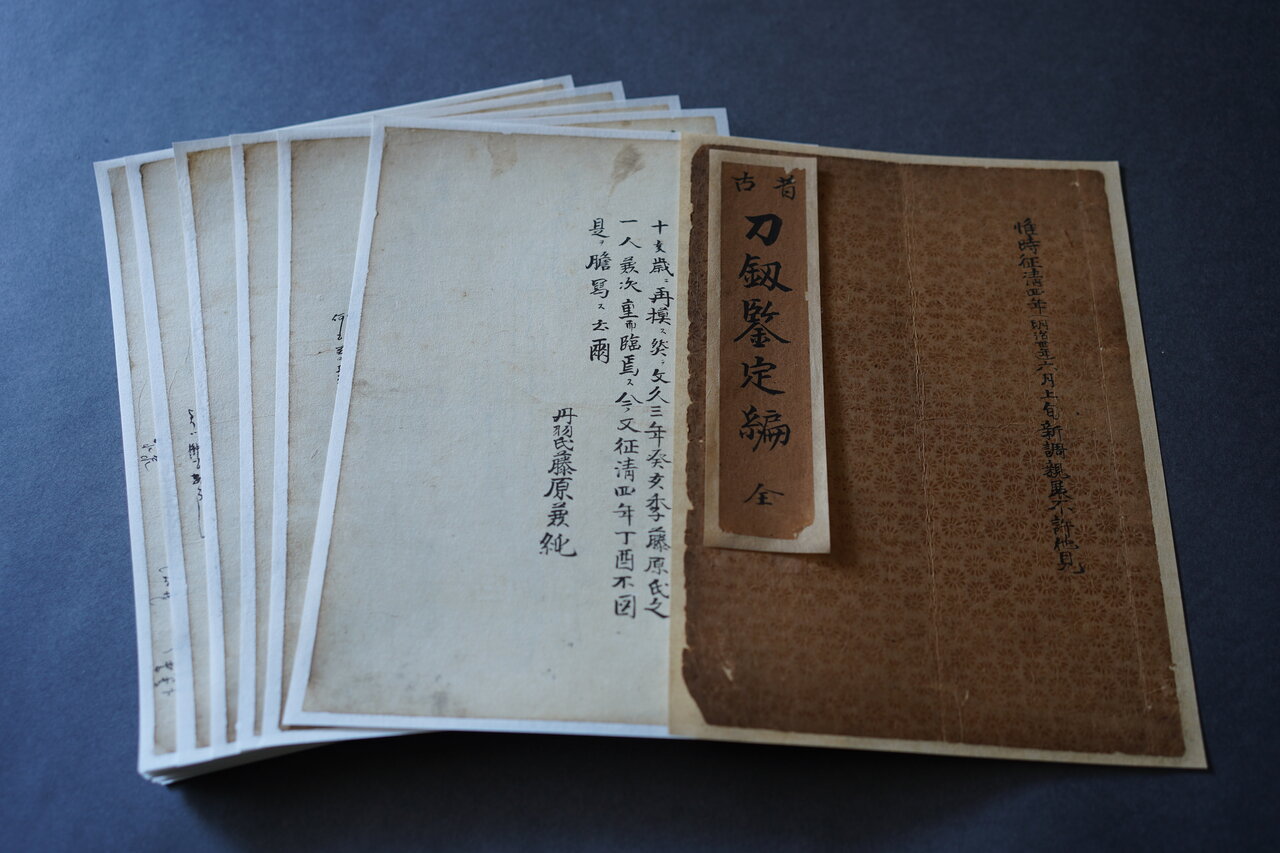 惟時征清四年明治卅年六月上旬新調親展不許他見
古昔
刀釼鑒定編
全
十支歳ニ再摸ス然ラ文久三年癸亥季藤原氏之
一人義次重而臨焉ス今又征清四年丁酉不図
是ヲ膽寫ス云爾
丹羽氏藤原義純